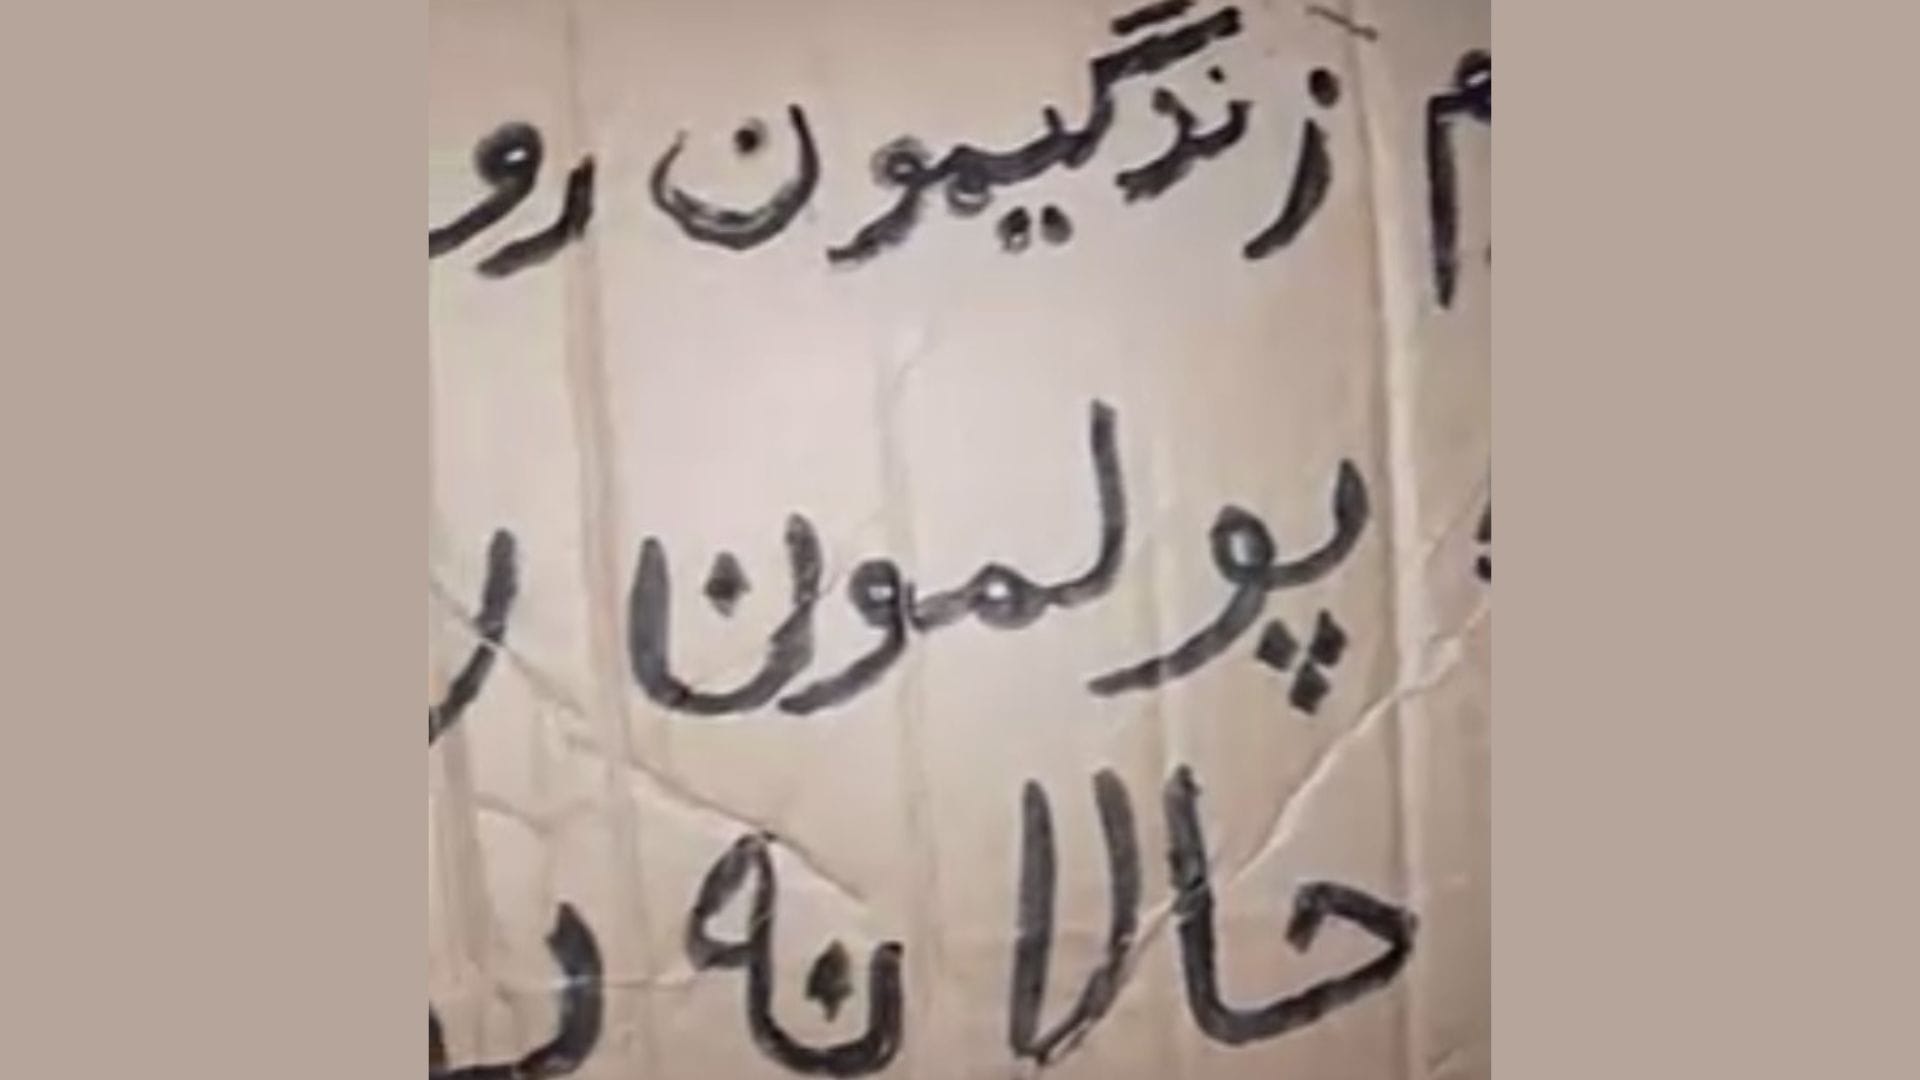 زندگیمون رو
پولمون ر
حالا نه